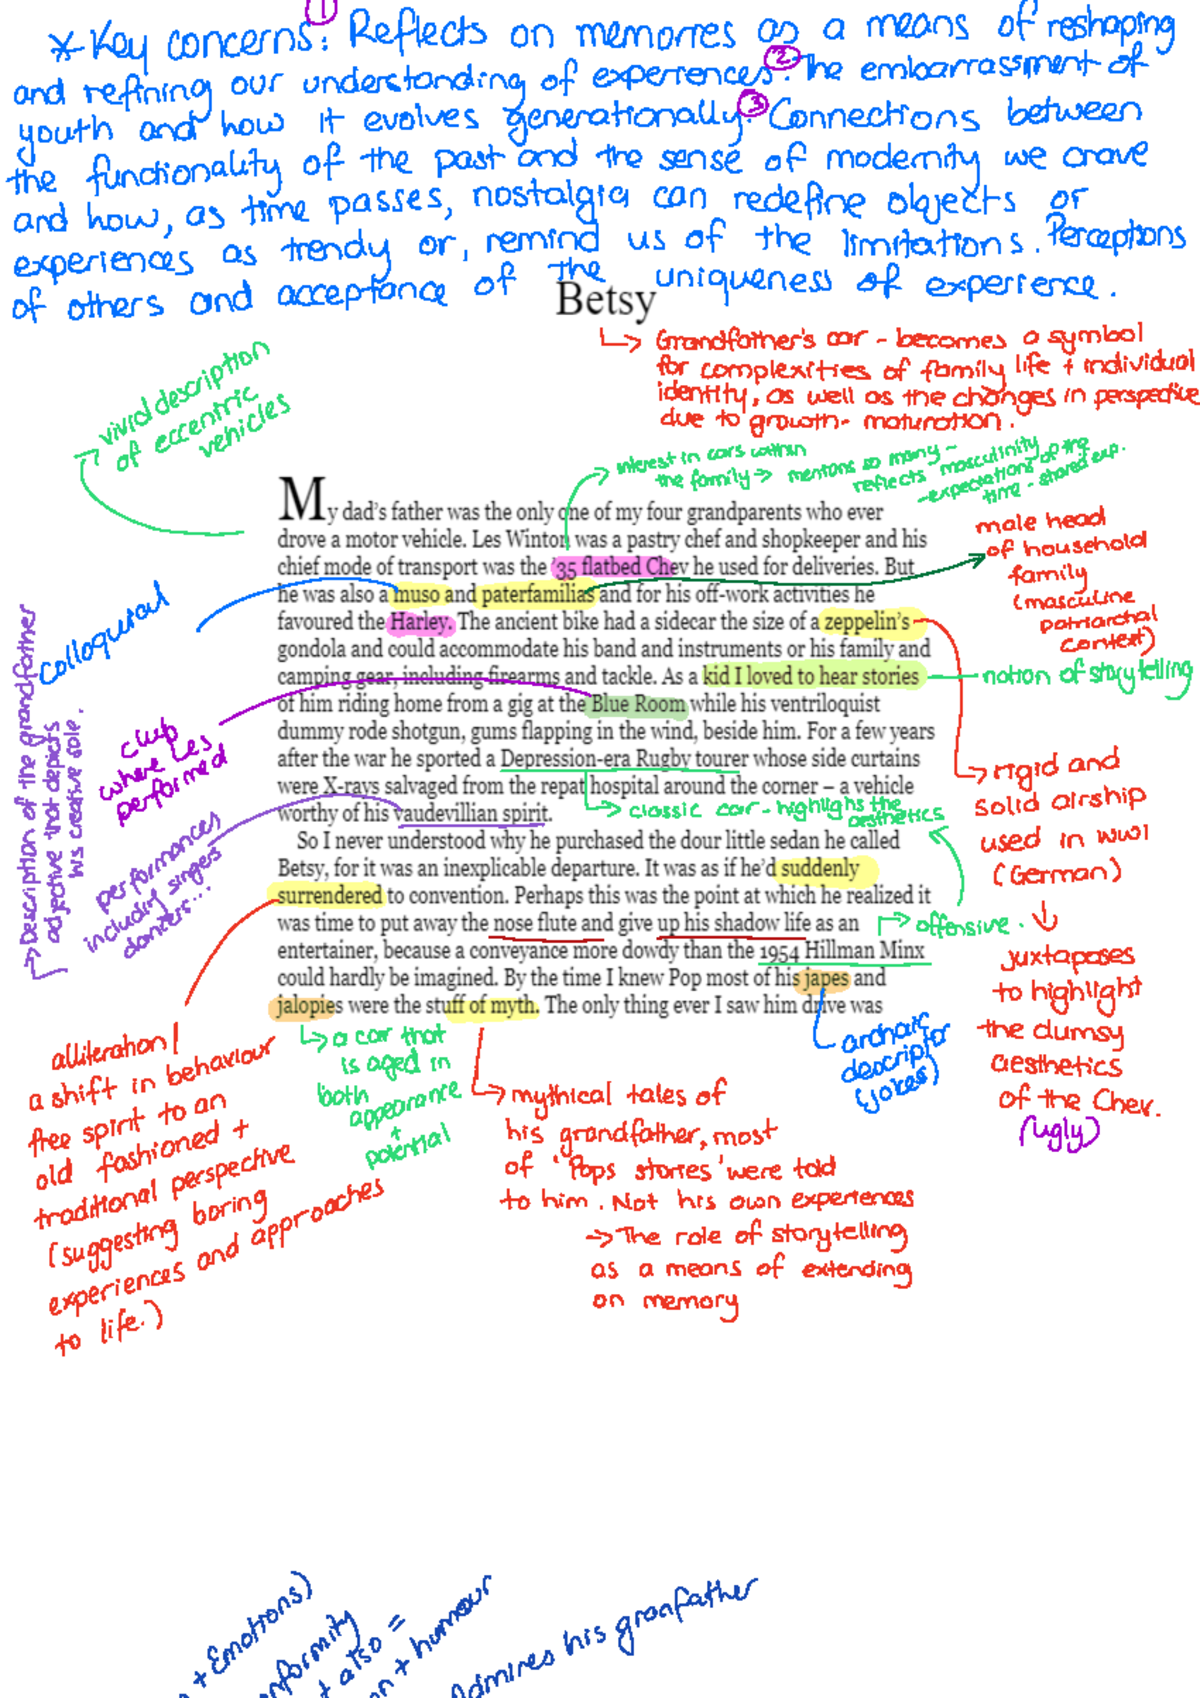 * Key concerns: ① Reflects on memories as a means of reshaping
and refining our understanding of experiences. ② The embarrassment of
youth and how it evolves generationally. ③ Connections between
the functionality of the past and the sense of modernity we crave
and how, as time passes, nostalgia can redefine objects or
experiences as trendy or, remind us of the limitations. Perceptions
of others and acceptance of the uniqueness of experience.
Betsy
↳ Grandfather's car - becomes a symbol
for complexities of family life + individual
identity, as well as the changes in perspective
due to growth - maturation.
vivid description
of eccentric
vehicles
→ interest in cars within
the family → mentions so many -
reflects masculinity
- expectations of the
time - shared exp.
My dad's father was the only one of my four grandparents who ever
drove a motor vehicle. Les Winton was a pastry chef and shopkeeper and his
chief mode of transport was the '35 flatbed Chev he used for deliveries. But
he was also a muso and paterfamilias and for his off-work activities he
favoured the Harley. The ancient bike had a sidecar the size of a zeppelin's
gondola and could accommodate his band and instruments or his family and
camping gear, including firearms and tackle. As a kid I loved to hear stories
of him riding home from a gig at the Blue Room while his ventriloquist
dummy rode shotgun, gums flapping in the wind, beside him. For a few years
after the war he sported a Depression-era Rugby tourer whose side curtains
were X-rays salvaged from the repat hospital around the corner – a vehicle
worthy of his vaudevillian spirit.
So I never understood why he purchased the dour little sedan he called
Betsy, for it was an inexplicable departure. It was as if he'd suddenly
surrendered to convention. Perhaps this was the point at which he realized it
was time to put away the nose flute and give up his shadow life as an
entertainer, because a conveyance more dowdy than the 1954 Hillman Minx
could hardly be imagined. By the time I knew Pop most of his japes and
jalopies were the stuff of myth. The only thing ever I saw him drive was
male head
of household
family
(masculine
patriarchal
context)
notion of storytelling
→ rigid and
solid airship
used in WW1
(German)
↓
juxtaposes
to highlight
the clumsy
aesthetics
of the Chev.
(ugly)
colloquial
club
where Les
performed
→ Description of the grandfather
adjective that depicts
his creative sole.
performances
including singers
dancers...
→ classic car - highlighs the
aesthetics
→ offensive.
alliteration /
a shift in behaviour
free spirit to an
old fashioned +
traditional perspective
(suggesting boring
experiences and approaches
to life.)
↳ a car that
is aged in
both
appearance
+
potential
→ mythical tales of
his grandfather, most
of 'Pops stories' were told
to him. Not his own experiences
→ The role of storytelling
as a means of extending
on memory
archaic
descriptor
(jokes)
+ Emotions)
also =
+ humour
Admires his granfather